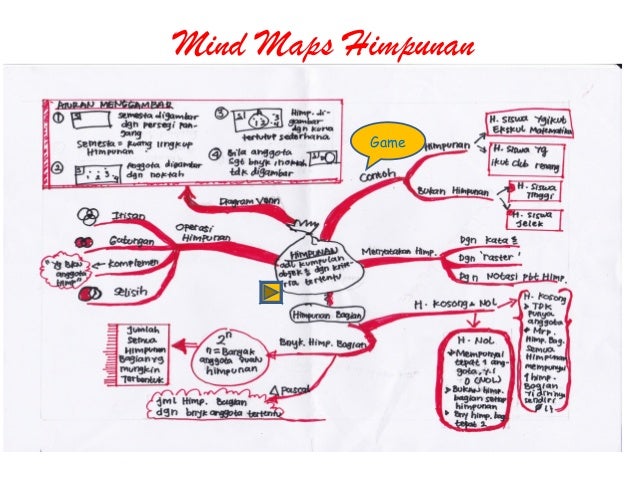 Mind Maps Himpunan
ATURAN MENGGAMBAR
① S
semesta digambar
dgn persegi pan-
gang
Semesta = ruang lingkup
Himpunan
②
Anggota digambar
dgn noktah
③
Himp. di-
gambar
dgn kurva
tertutup sederhana
④ Bila anggota
Sgt bnyk, noktah
tdk digambar
Diagram Venn
Game
Contoh
Himpunan
H. Siswa yg ikut
Ekskul Matematika
H. Siswa yg
ikut club renang
Bukan Himpunan
H. Siswa
Tinggi
H. Siswa
Jelek
Operasi
Himpunan
Irisan
Gabungan
Komplemen
anggota
Selisih
HIMPUNAN
adl kumpulan
objek² dgn krite-
ria tertentu
Menyatakan Himp.
Dgn kata²
Dgn 'raster'
Dgn Notasi Pbt Himp.
Himpunan Bagian
Bnyk. Himp. Bagian
2ⁿ
n = Banyak
anggota suatu
himpunan
Jumlah
semua
Himpunan
Bagian yg
mungkin
Terbentuk
Δ Pascal
Jml Himp. Bagian
dgn bnyk anggota tertentu
H. Kosong & NOL
H. NOL
Mempunyai
tepat 1 ang-
gota, y.i
0 (NOL)
Bukan himp.
bagian setiap
himpunan
Bny himp. bag.
tepat 2
H. Kosong
TDK
punya
anggota
Mrp.
Himp. Bag.
semua
Himpunan
mempunyai
1 himp.
Bagian
sendiri